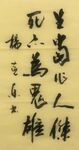 生當作人傑
死亦為鬼雄
楊